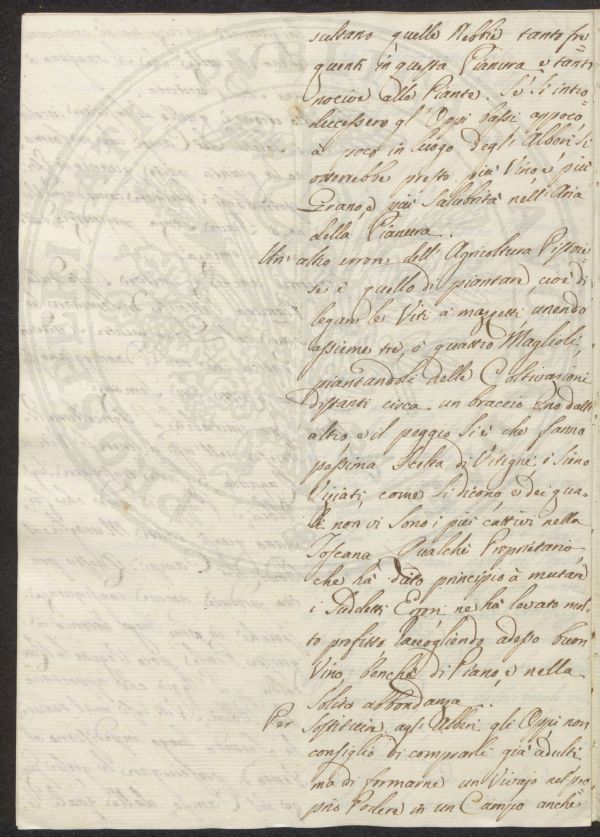 sultano quelle Nebbie tanto fre
quenti in questa Pianura e tanto
nocive alle Piante. Se si intro=
ducessero gl' Oppi bassi appoco,
à poco in luogo degli Alberi si
otterrebbe presto più Vino e più
Grano, e più Salubrità nell'Aria
della Pianura.
Un'altro errore dell'Agricoltura Pistoie
se è quello di piantare, cioè di
legare le Viti à mazzetti unendo
assieme trè, ò quattro Maglioli,
piantandoli nelle Coltivazioni
distanti circa un braccio uno dall'
altro e il peggio si è che fanno
pessima scelta di Vitigni, i sieno
Viziati, come si dicono, e dei qua=
li non vi sono i più cattivi nella
Toscana. Qualche Proprietario,
che hà dato principio à mutare
i Suddetti Errori ne hà levato mol=
to profitto, raccogliendo adesso buon
Vino, benchè di Piano, e nella
solita abbondanza.
Per sostituire agli Alberi gli Oppi non
consiglio di comprarli già adulti
ma di formarne un Vivajo nel pro
prio Podere in un Campo anche